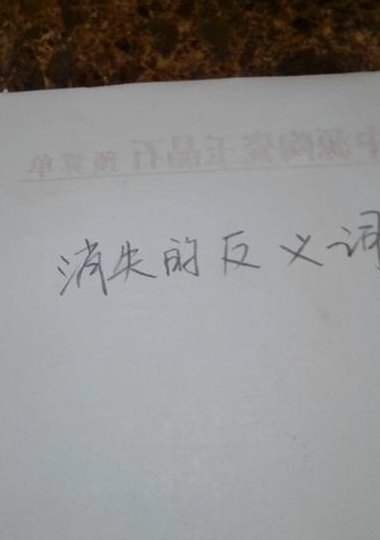 消失的反义词